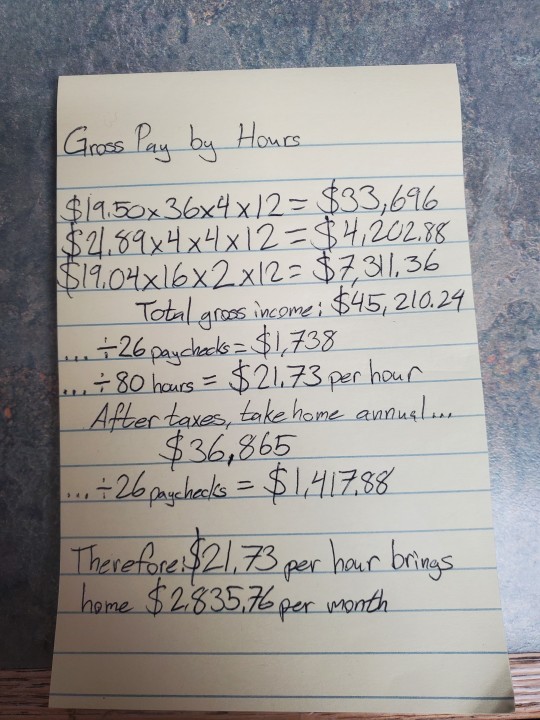 Gross Pay by Hours
$19.50x36x4x12= $33,696
$21.89x4x4x12=$4,202.88
$19.04x16x2x12=$7,311.36
Total gross income: $45,210.24
... ÷26 paychecks= $1,738
... ÷80 hours = $21.73 per hour
After taxes, take home annual...
$36,865
... ÷26 paychecks = $1,417.88
Therefore: $21.73 per hour brings
home $2,835.76 per month